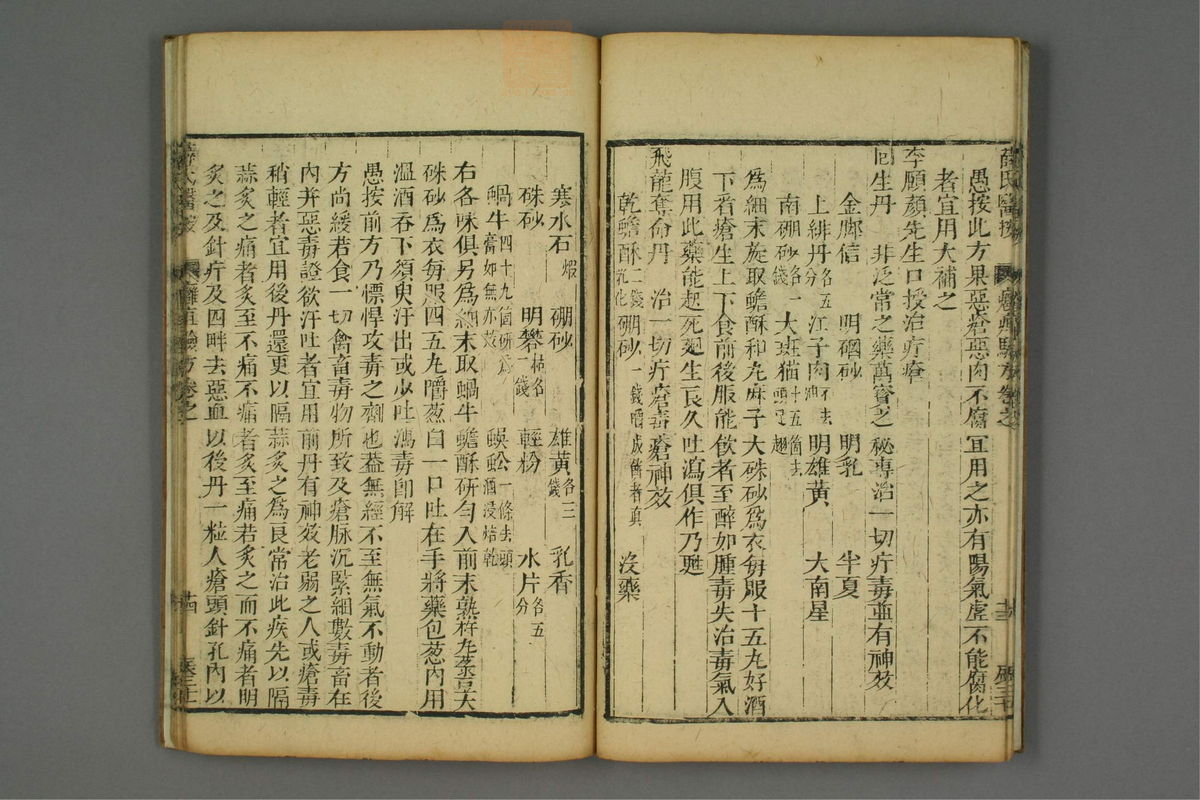 愚按此方果惡瘡惡肉不腐宜用之亦有陽氣虛不能腐化
者宜用大補之
李顧顏先生口授治疔瘡
回生丹 非泛常之藥萬寳之秘專治一切疔毒亟有神效
金脚信 明硇砂 明乳 半夏
上緋丹各五分 江子肉不去油 明雄黃 大南星
南硼砂各一錢 大斑猫十五箇去頭足翅
爲細末旋取蟾酥和丸麻子大硃砂爲衣每服十五丸好酒
下看瘡生上下食前後服能飲者至醉如腫毒失治毒氣入
腹用此藥能起死廻生良久吐瀉俱作乃甦
飛龍奪命丹 治一切疔瘡毒瘡神效
乾蟾酥二錢乳化 硼砂一錢 成膏者真 沒藥
寒水石煆 硼砂 雄黃各三錢 乳香
硃砂 明礬枯各一錢 輕粉 水片各五分
蝸牛四十九箇研爲膏如無亦效 蜈蚣一條去頭酒浸焙乾
右各味俱另爲細末取蝸牛蟾酥研匀入前末熟杵丸菉豆大
硃砂爲衣每服四五丸嚼葱白一口吐在手將藥包葱內用
溫酒吞下須臾汗出或少吐瀉毒卽解
愚按前方乃慓悍攻毒之劑也葢無經不至無氣不動者後
方尚緩若食一切禽畜毒物所致及瘡脉沉緊細數毒畜在
內并惡毒證欲汗吐者宜用前丹有神效老弱之人或瘡毒
稍輕者宜用後丹還更以隔蒜炙之爲良常治此疾先以隔
蒜炙之痛者炙至不痛不痛者炙至痛若炙之而不痛者明
炙之及針疔及四畔去惡血以後丹一粒人瘡頭針孔內以